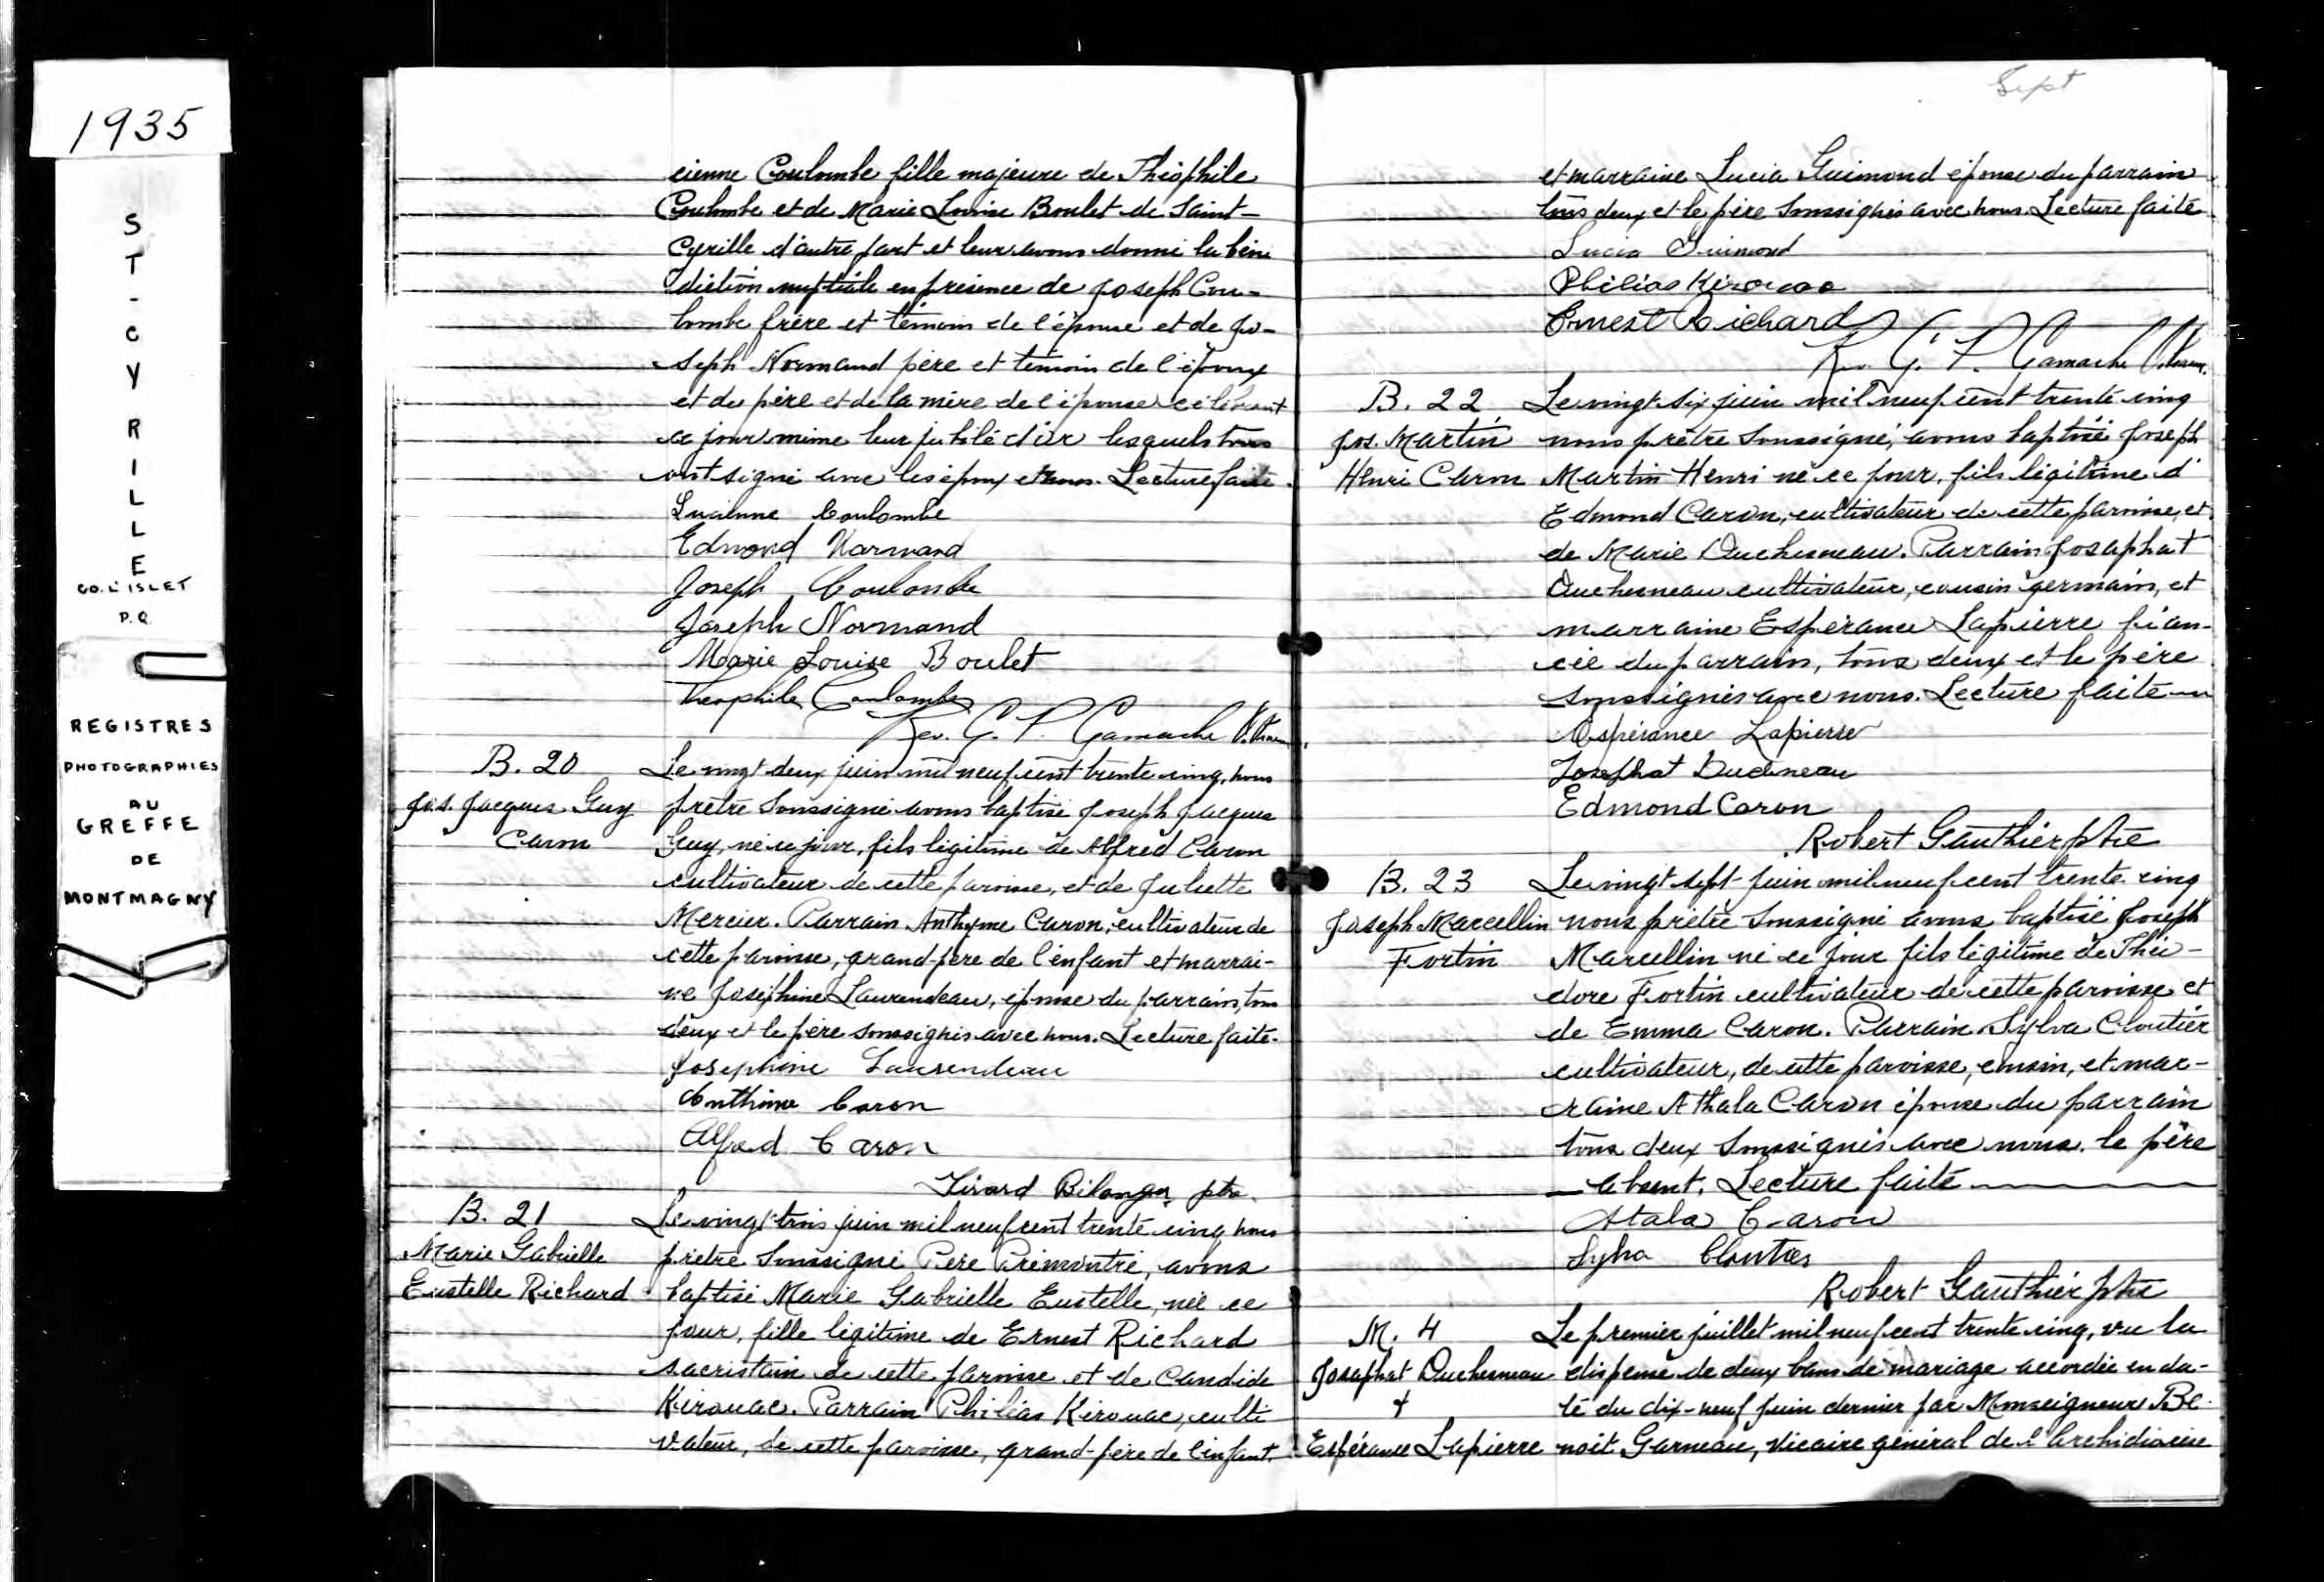 1935
ST-CYRILLE
CO. L'ISLET
P.Q.
REGISTRES
PHOTOGRAPHIES
AU
GREFFE
DE
MONTMAGNY
cienne Coulombe fille majeure de Théophile
Coulombe et de Marie Louise Boulet de Saint-
Cyrille d'autre part et leur avons donné la béné
diction nuptiale en présence de Joseph Cou-
lombe frère et témoin de l'épouse et de Jo-
seph Normand père et témoin de l'époux
et du père et de la mère de l'épouse célébrant
ce jour même leur jubilé d'or lesquels tous
ont signé avec les époux et nous. Lecture faite.
Lucienne Coulombe
Edmond Normand
Joseph Coulombe
Joseph Normand
Marie Louise Boulet
Théophile Coulombe
Rev. G. P. Gamache
B. 20
Jos. Jacques Guy
Caron
Le vingt deux juin mil neuf cent trente cinq, nous
prêtre soussigné avons baptisé Joseph Jacques
Guy, né ce jour, fils légitime de Alfred Caron
cultivateur de cette paroisse, et de Juliette
Mercier. Parrain Anthyme Caron, cultivateur de
cette paroisse, grand-père de l'enfant et marrai-
ne Joséphine Laurendeau, épouse du parrain, tous
deux et le père soussignés avec nous. Lecture faite.
Joséphine Laurendeau
Anthime Caron
Alfred Caron
Bélanger ptre.
B. 21
Marie Gabrielle
Eustelle Richard
Le vingt trois juin mil neuf cent trente cinq nous
prêtre soussigné Père Prémontré, avons
baptisé Marie Gabrielle Eustelle, née ce
jour, fille légitime de Ernest Richard
sacristain de cette paroisse et de Candide
Kirouac. Parrain Philias Kirouac, culti
vateur, de cette paroisse, grand-père de l'enfant.
Sept
et marraine Lucia Guimond épouse du parrain
tous deux et le père soussignés avec nous. Lecture faite
Lucia Guimond
Philias Kirouac
Ernest Richard
Rev. G. P. Gamache
B. 22
Jos. Martin
Henri Caron
Le vingt six juin mil neuf cent trente cinq
nous prêtre soussigné, avons baptisé Joseph
Martin Henri né ce jour, fils légitime d'
Edmond Caron, cultivateur de cette paroisse, et
de Marie Duchesneau. Parrain Josaphat
Duchesneau cultivateur, cousin germain, et
marraine Espérance Lapierre fian-
cée du parrain, tous deux et le père
soussignés avec nous. Lecture faite
Espérance Lapierre
Josephat Duchneau
Edmond Caron
Robert Gauthier ptre
B. 23
Joseph Marcellin
Fortin
Le vingt sept juin mil neuf cent trente cinq
nous prêtre soussigné avons baptisé Joseph
Marcellin né ce jour fils légitime de Théo-
dore Fortin cultivateur de cette paroisse et
de Emma Caron. Parrain Sylva Cloutier
cultivateur, de cette paroisse, cousin, et mar-
raine Athala Caron épouse du parrain
tous deux soussignés avec nous. le père
absent. Lecture faite
Atala Caron
Sylva Cloutier
Robert Gauthier ptre
M. 4
Josaphat Duchesneau
+
Espérance Lapierre
Le premier juillet mil neuf cent trente cinq, vu la
dispense de deux bans de mariage accordée en da-
te du dix-neuf juin dernier par Monseigneur Be-
noit Garneau, vicaire général de l'Archidiocèse